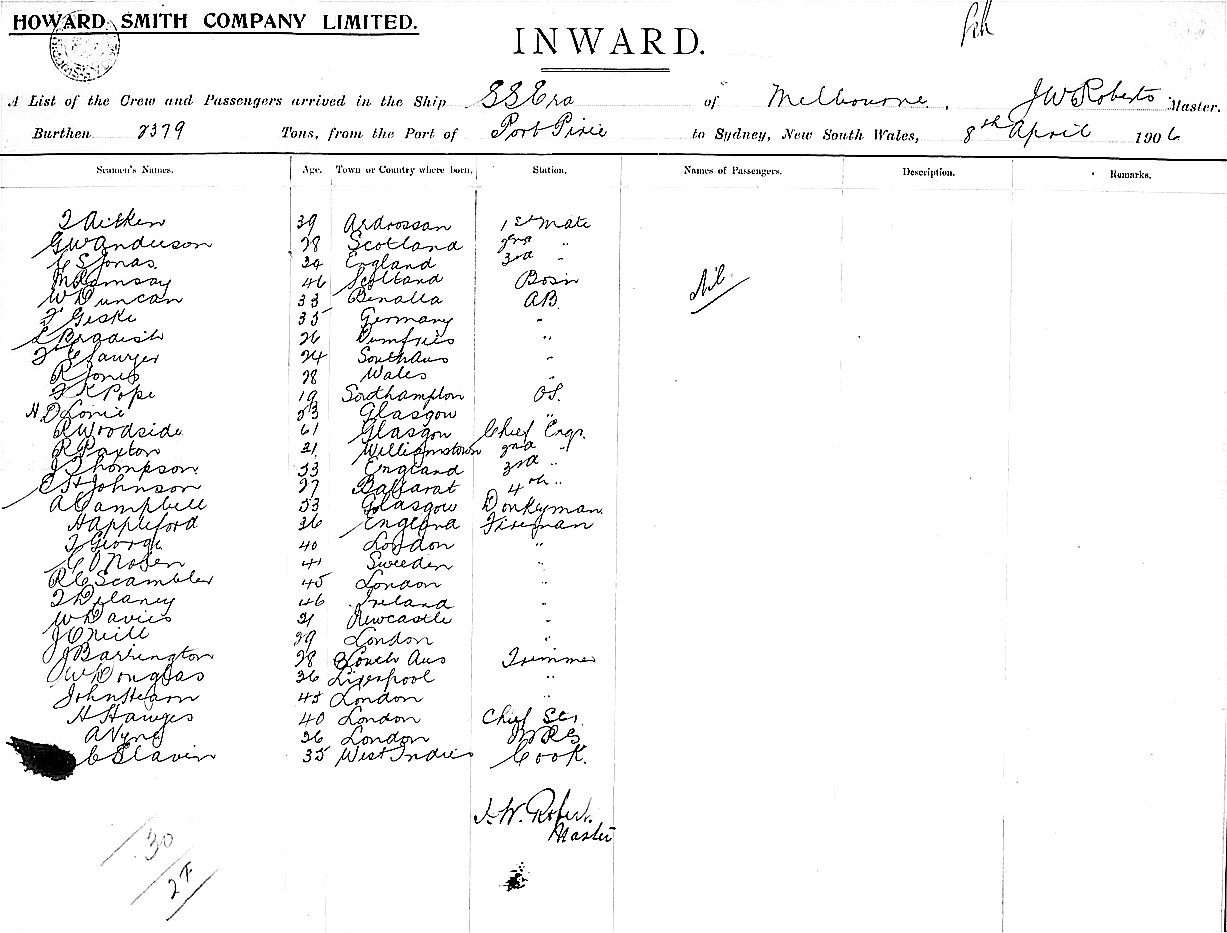 HOWARD SMITH COMPANY LIMITED.
INWARD.
A List of the Crew and Passengers arrived in the Ship SS Era of Melbourne. JW Roberts Master.
Burthen 2379 Tons, from the Port of Port Pirie to Sydney, New South Wales, 8th April 1906
Seamen's Names. Age. Town or Country where born. Station. Names of Passengers. Description. Remarks.
T Aitken 39 Ardrossan 1st Mate
GW Anderson 28 Scotland 2nd "
S Jonas 24 England 3rd "
M Ramsay 46 Scotland Bosn
W Duncan 33 Benalla AB
Nil
F Giske 35 Germany "
26 Dumfries "
F E Sawyer 24 South Aus "
R Jones 28 Wales "
F K Pope 19 Southampton OS.
H D Lorie 53 Glasgow "
R Woodside 61 Glasgow Chief Engr.
R Paxton 21 Williamstown 2nd "
J Thompson 33 England 3rd "
E St Johnson 27 Ballarat 4th "
A Campbell 53 Glasgow Donkeyman
H Appleford 36 England Fireman
T George 40 London "
C O Nosen 41 Sweden "
R C Scambler 45 London "
T Delaney 46 Ireland "
W Davies 21 Newcastle "
J O'Neill 29 London "
J Barrington 28 South Aus Trimmer
W Douglas 36 Liverpool "
John Hearn 45 London "
H Hawyes 40 London Chief
A Vyng 26 London
C Slavin 35 West Indies Cook.
J. W. Robert.
Master
30
27